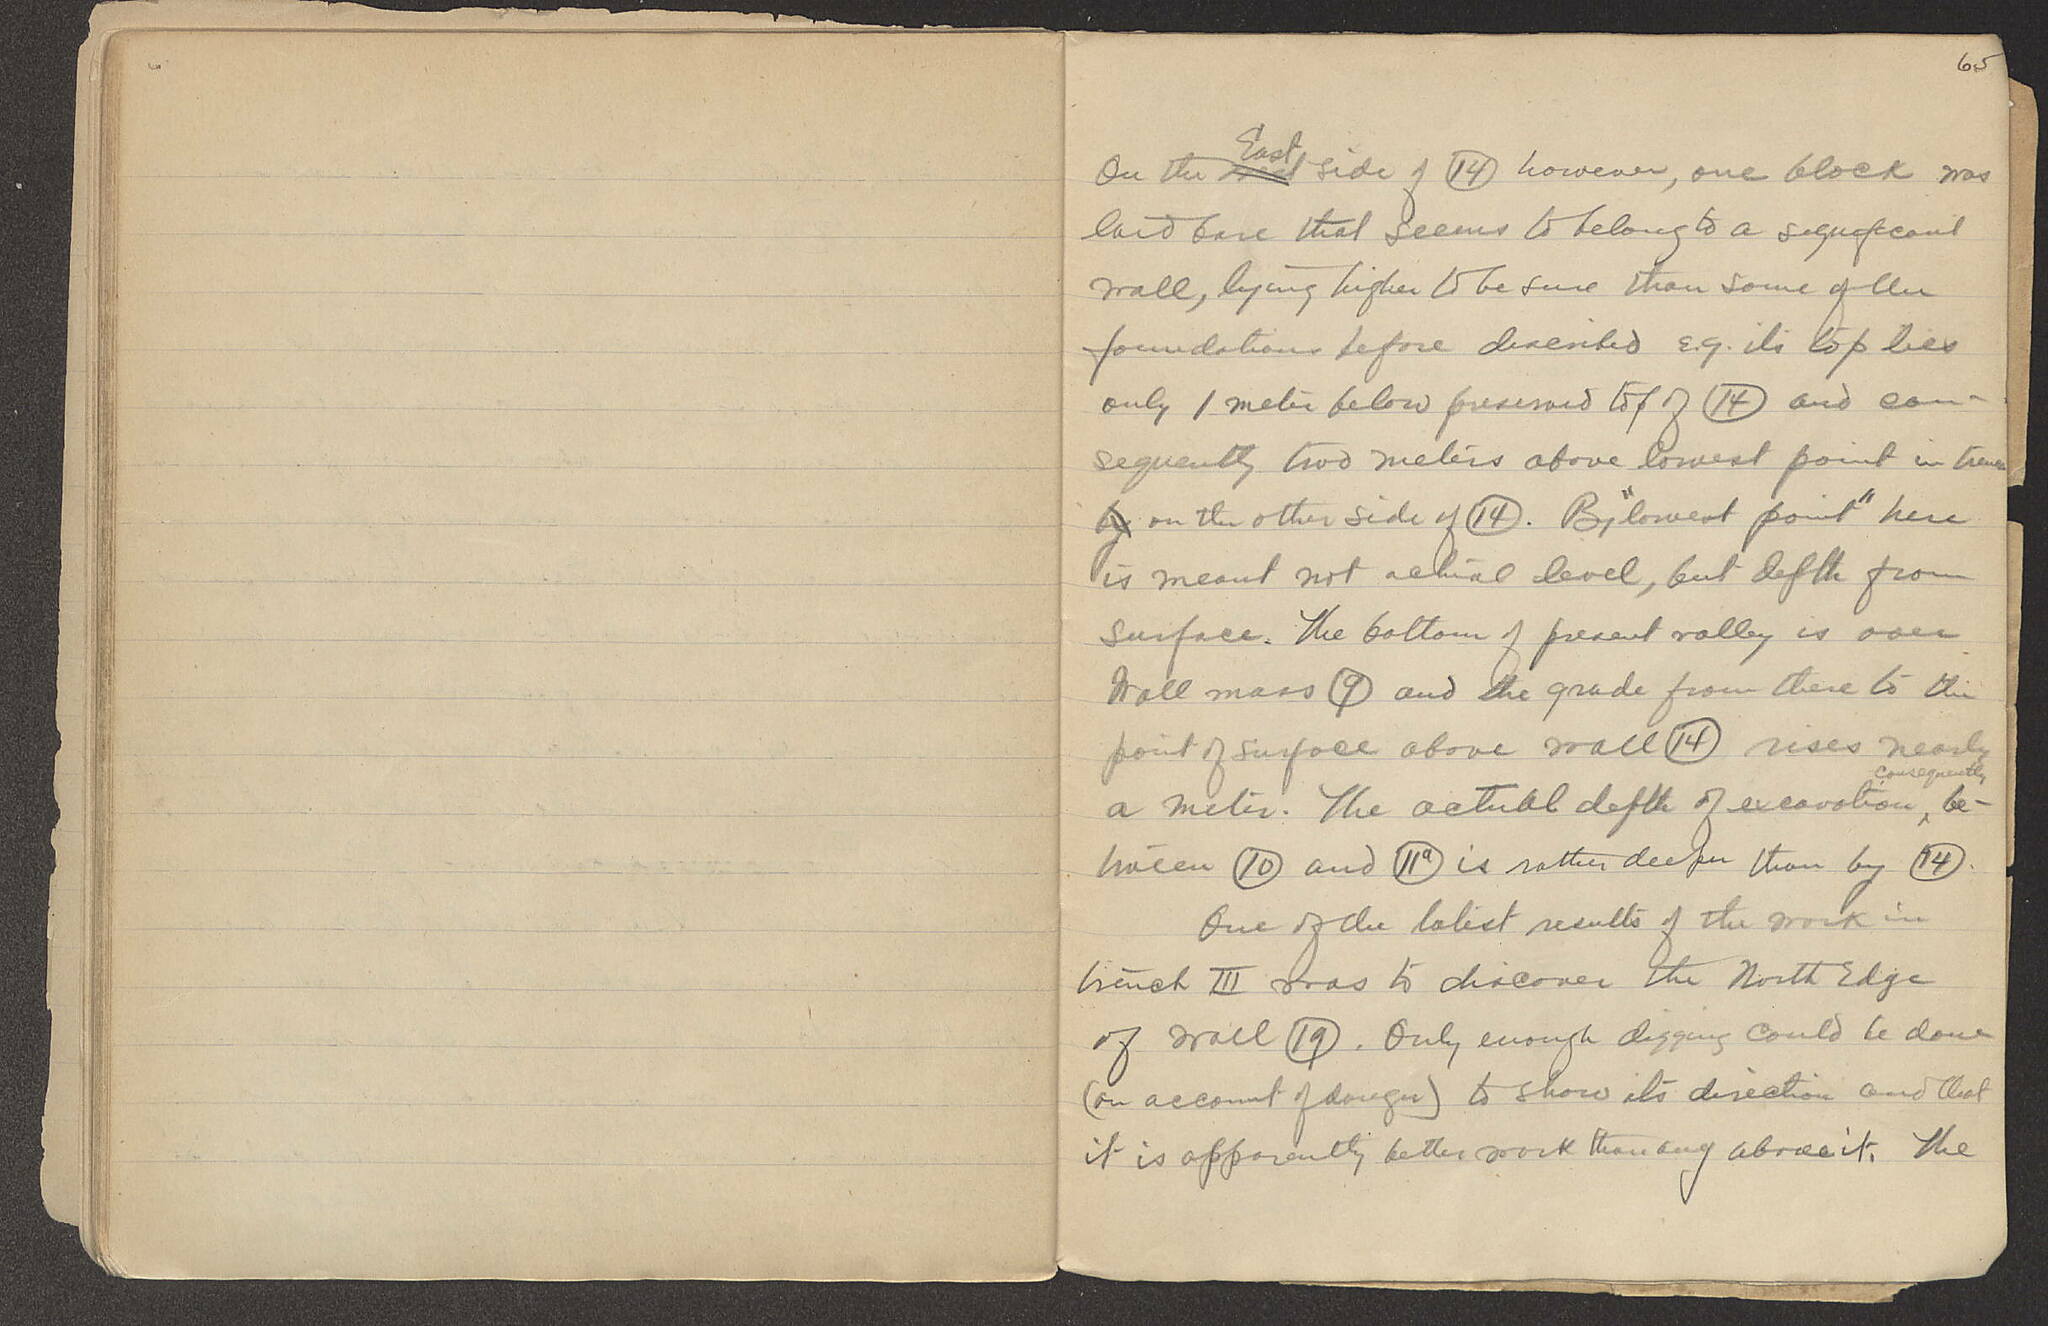 65
On the East side of (14) however, one block was
laid bare that seems to belong to a significant
wall, lying higher to be sure than some of the
foundations before described e.g. its top lies
only 1 meter below preserved top of (14) and con-
sequently two meters above lowest point in trench
by on the other side of (14). By "lowest point" here
is meant not actual level, but depth from
surface. The bottom of present valley is over
Wall mass (9) and the grade from there to the
point of surface above wall (14) rises nearly
a meter. The actual depth of excavation, consequently be-
tween (10) and (11a) is rather deeper than by (14).
One of the latest results of the work in
trench III was to discover the North Edge
of wall (19). Only enough digging could be done
(on account of danger) to show its direction and that
it is apparently better work than any above it. The